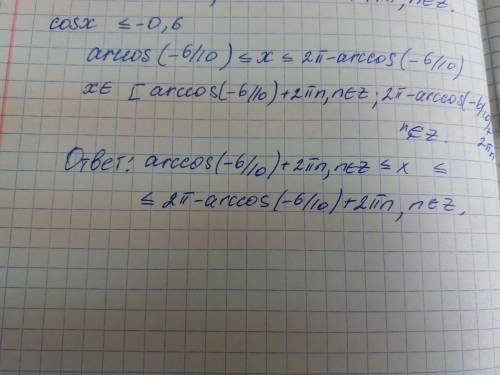 n∈z.
cosx ≤ -0,6
arccos(-6/10) ≤ x ≤ 2π-arccos(-6/10)
x∈ [arccos(-6/10)+2πn, n∈z; 2π-arccos(-6/10)+
n∈z. 2πn
Ответ: arccos(-6/10)+2πn, n∈z ≤ x ≤
≤ 2π-arccos(-6/10)+2πn, n∈z,